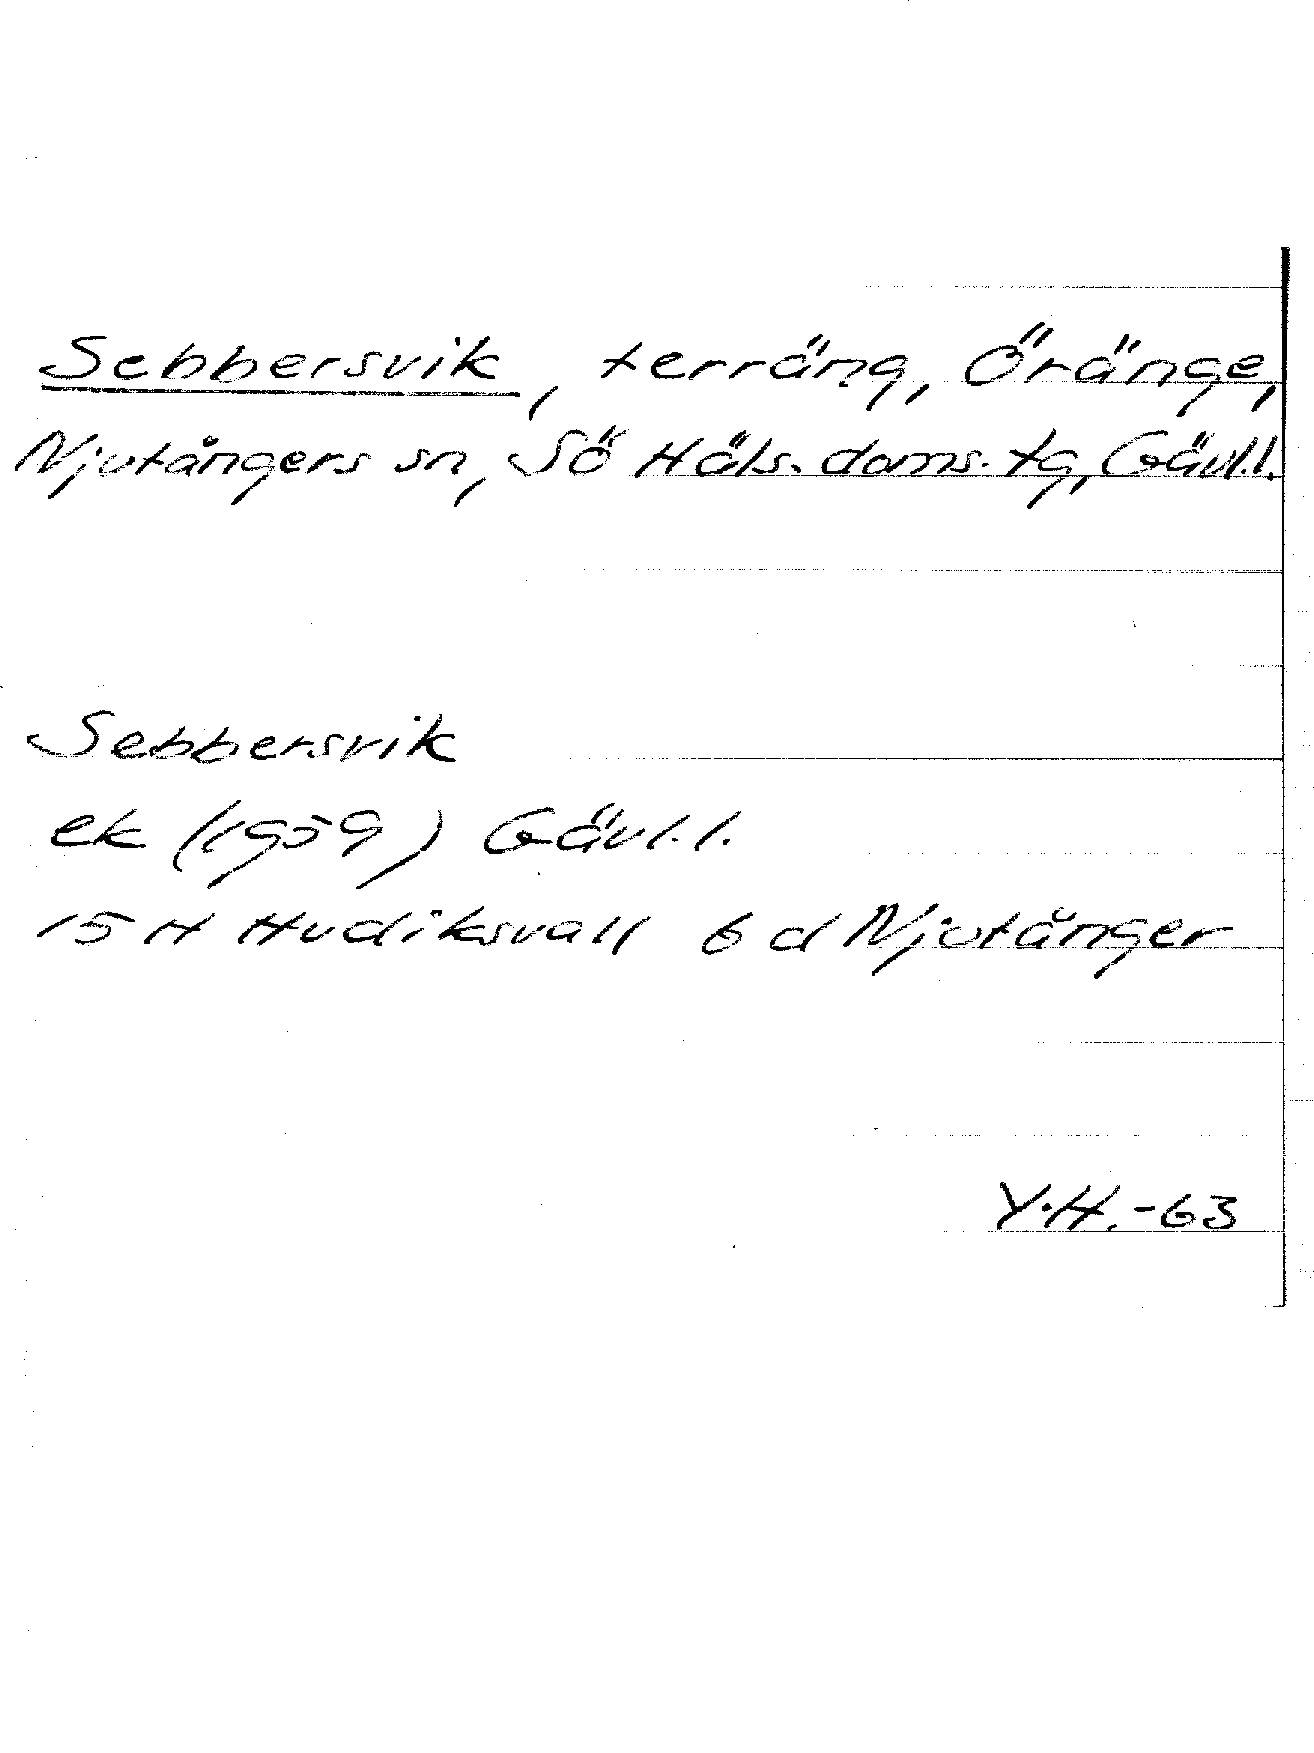 Sebbersvik, terräng, Öränge,
Njutångers sn, Sö Häls. doms. tg, Gävl.l.
Sebbersvik
ek (1959) Gävl.l.
15 H Hudiksvall 6 d Njutånger
Y.H.-63